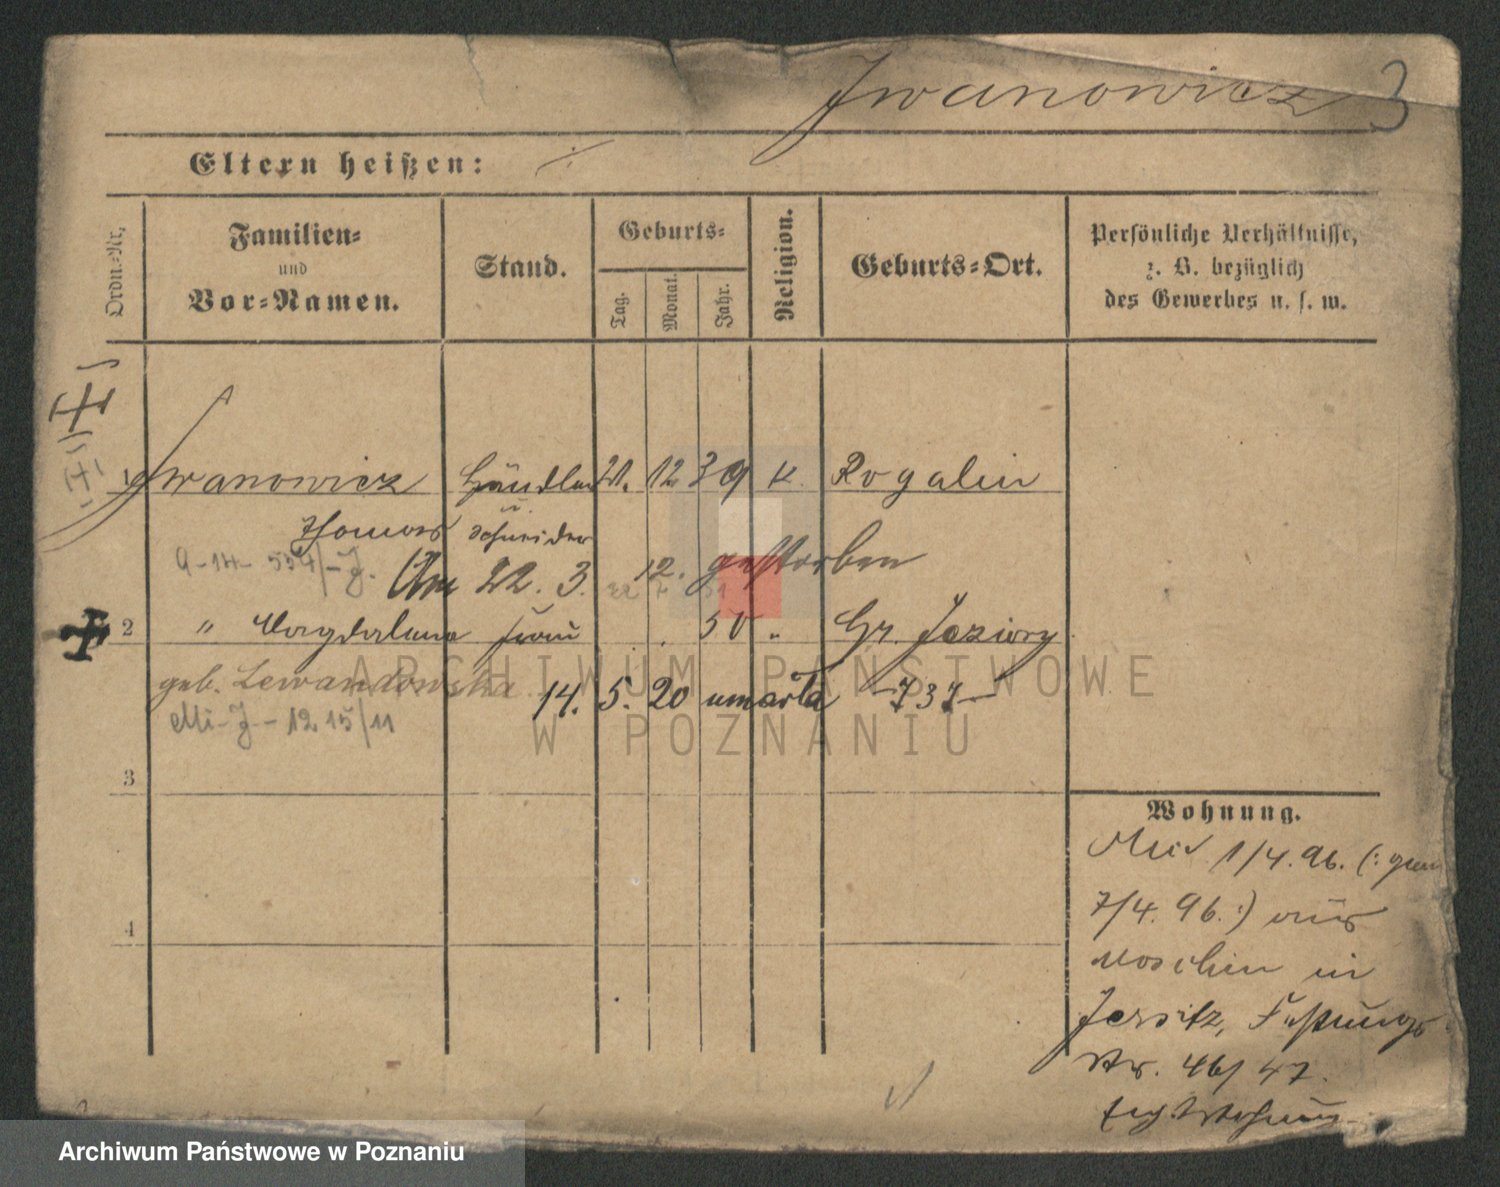 Iwanowicz 3
Eltern heißen: ·/·
Ordn.-Nr,
Familien-
und
Vor-Namen.
Stand.
Geburts-
Tag.
Monat.
Jahr.
Religion.
Geburts-Ort.
Persönliche Verhältnisse,
z. B. bezüglich
des Gewerbes u. s. w.
1 Iwanowicz Händler 21. 12 39 K. Rogalin
Thomas Schneider
Am 22. 3. 12. gestorben
2 " Magdalena Frau 50 " Gr. Jeziory
geb. Lewandowska 14. 5. 20 umarła -737-
3
4
Wohnung.
1/4. 96. (: gem
7/4. 96. :) aus
Moschin in
Jersitz, Festungs
Str. 46/47.
ARCHIWUM PAŃSTWOWE
W POZNANIU
Archiwum Państwowe w Poznaniu